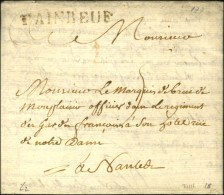 PAINBEUF
Monsieur
Monsieur Le Marquis de brue de
Monplaisir officier dans Le regiment
du gardes françoises à Son hotel rue
de notre Dame
a Nantes